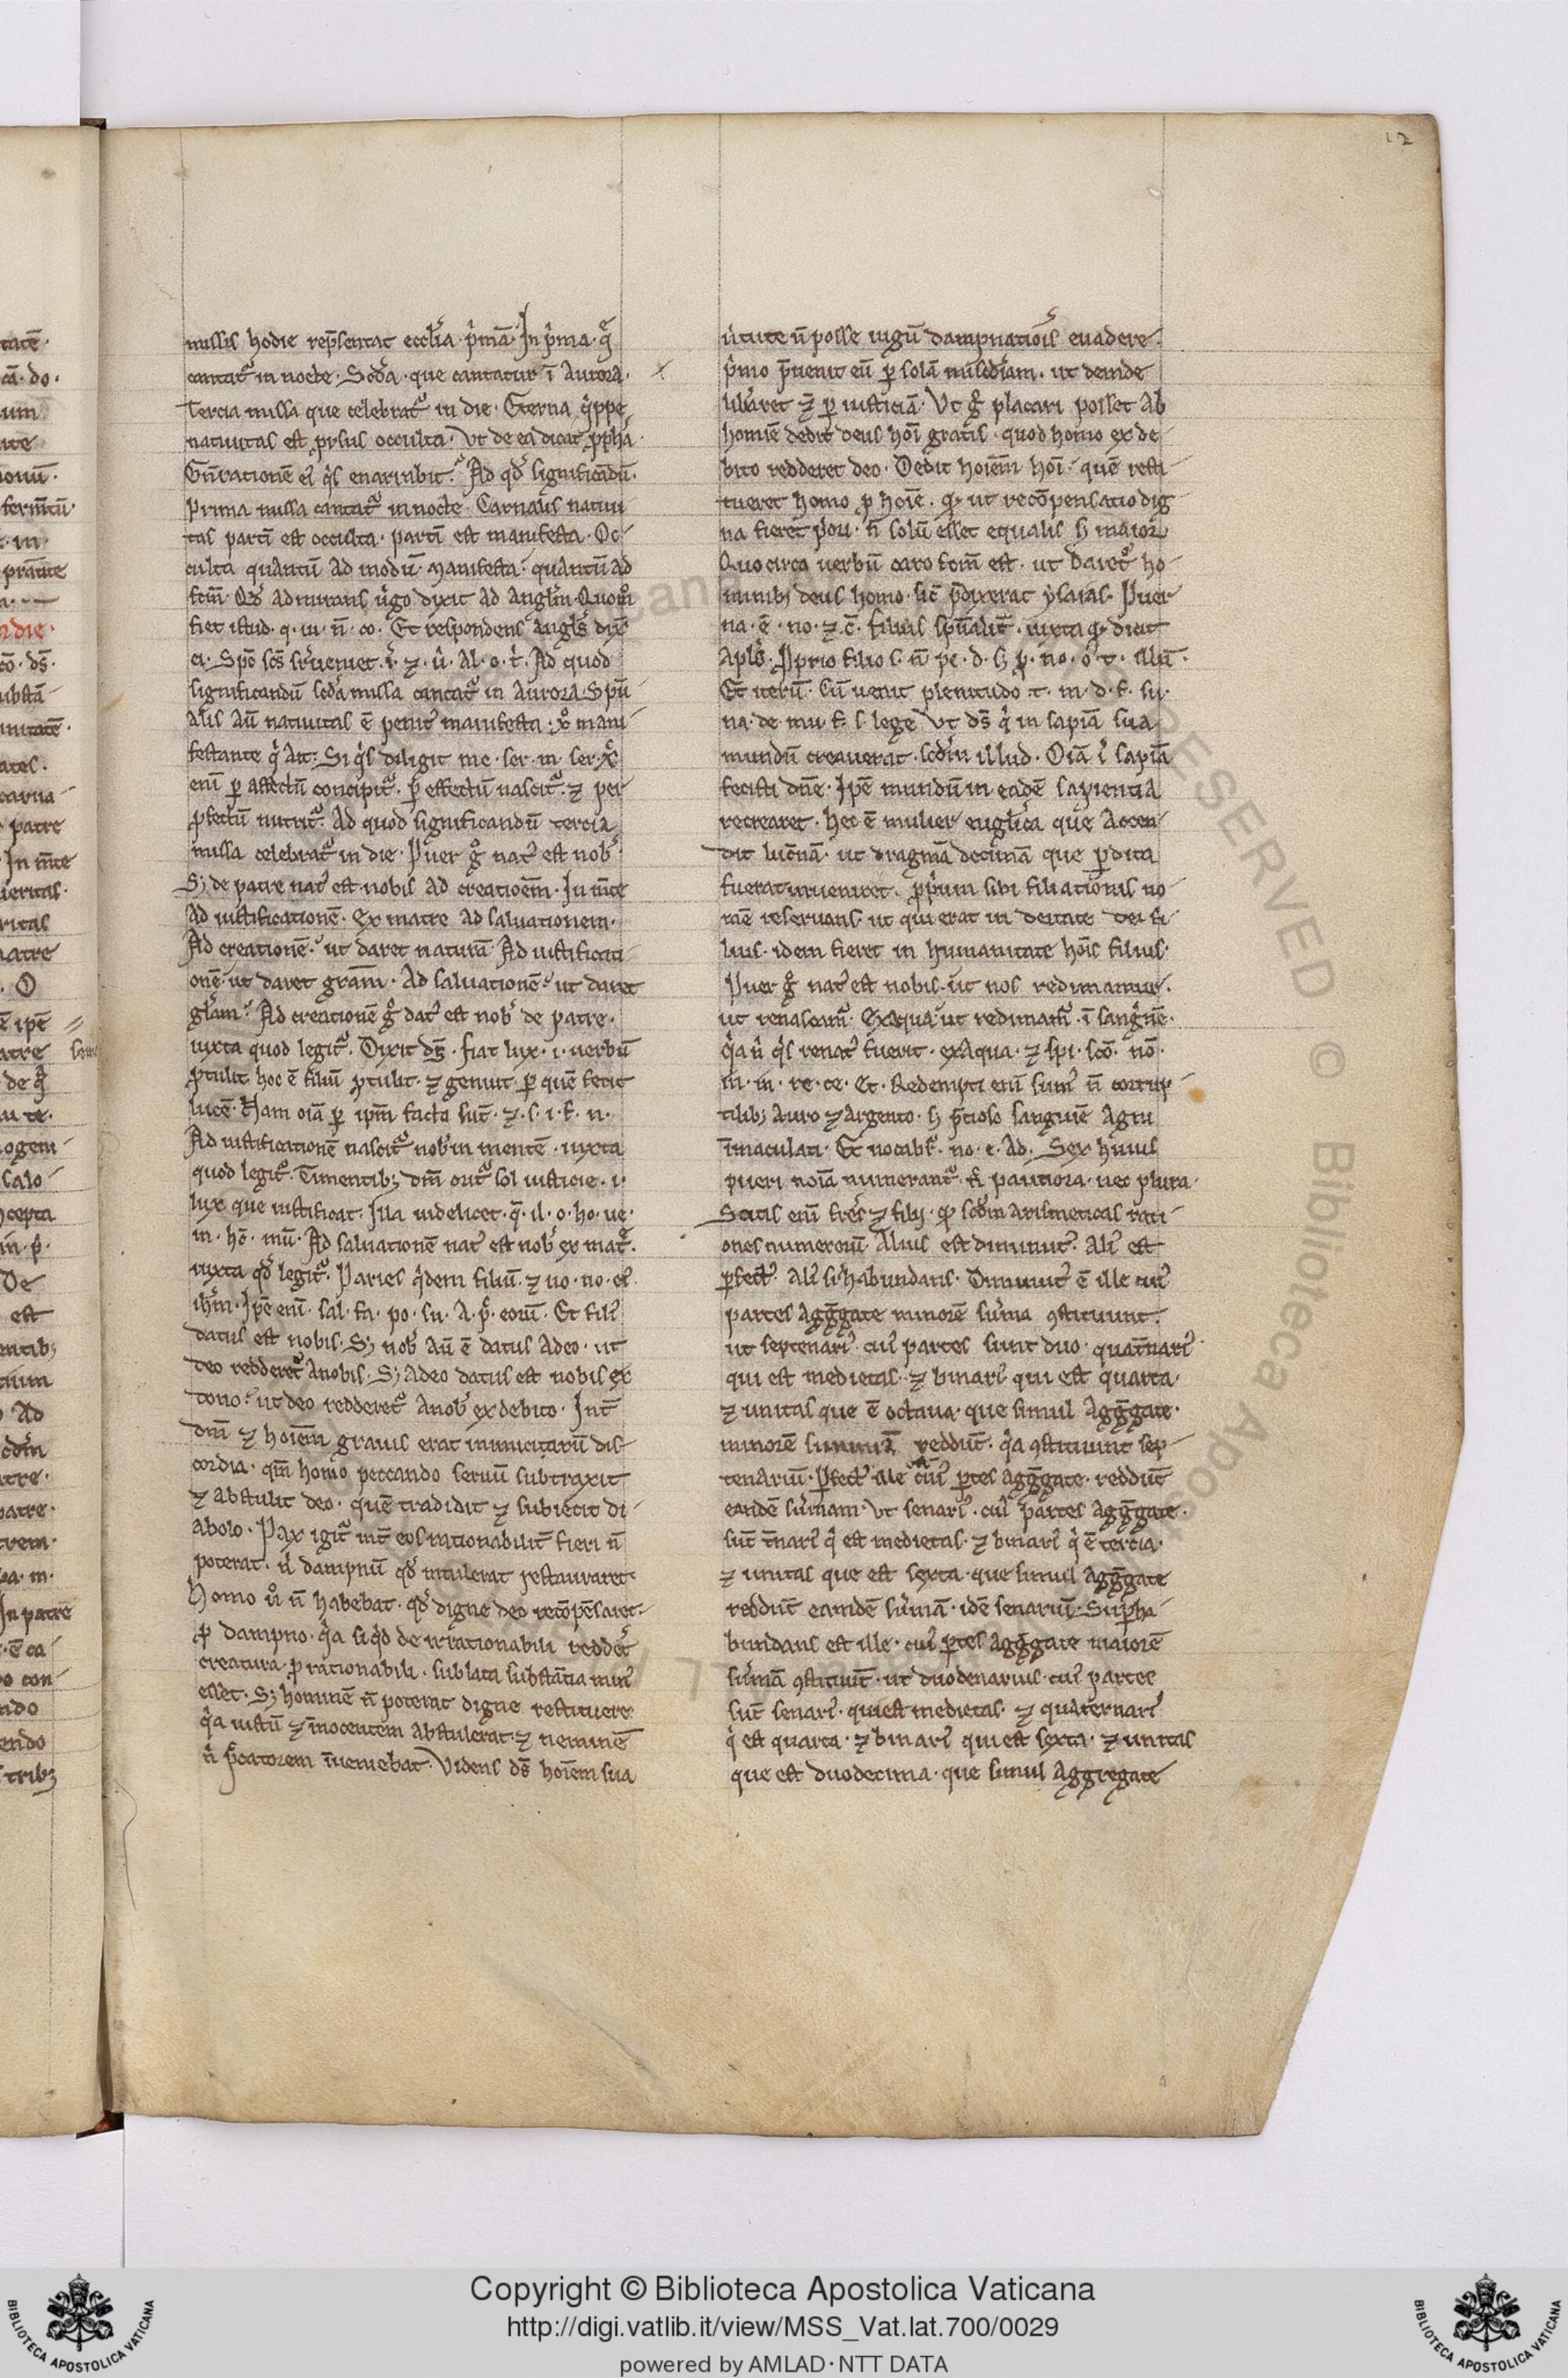 12
missis hodie rep̄sentat eccl̄ia p̓mā. In p̓ma. q̄
cantat᷑ in nocte. Scd̓a. que cantatur ī aurora.
Tercia missa que celebrat᷑ in die. Eterna q̓ppe
natiuitas est prsus occulta. Vt de ea dicat ꝓpha.
Gn̄rationē ei᷒ q̓s enarrabit. Ad qd̓ significādū.
Prima missa cantat᷑ in nocte. Carnalis natiui
tas partī est occulta. partī est manifesta. Oc
culta quantū ad modū. Manifesta. quantū ad
fcm̄. Qd̓ admirans u̓go dixit ad angl̄m. Quom̊
fiet istud. q. ui. n̄. co. Et respondens angl̄s dix̓
ei. Spc̄ scs̄ sr̓ueniet. ī. ⁊. u̓. al. o. t̓. Ad quod
significandū scd̓a missa cantat᷑ in aurora. Spū
alis aū natiuitas ē penit᷒ manifesta. xp̊ mani
festante q̓ ait. Si q̓s diligit me. ser. m. ser. X̊
enī ꝑ affectū concipit᷑. ꝑ effectū nascit᷑. ⁊ per
ꝓfectū nutrit᷑. Ad quod significandū tercia
missa celebrat᷑ in die. Puer g̊ nat᷒ est nob᷒.
Sꝫ de patre nat᷒ est nobis ad creatioēm. In m̄te
ad iustificationē. Ex matre ad saluationem.
Ad creationē. ut daret naturā. Ad iustificati
onē. ut daret grām. Ad saluationē. ut daret
glam̄. Ad creationē g̊ dat᷒ est nob᷒ de patre.
iuxta quod legit᷑. Dixit ds̄. fiat lux. i. uerbū
ꝓtulit hoc ē filiū ꝓtulit. ⁊ genuit. ꝑ quē fecit
lucē. Nam oīa ꝑ ipm̄ facta sūt. ⁊. s. i. f. n.
Ad iustificationē nascit᷑ nob᷒ in mentē. iuxta
quod legit᷑. Timentibꝫ dm̄ orit᷑ sol iusticie. i.
lux que iustificat. Illa uidelicet. q̄. il. o. ho. ue.
in. hc̄. mū. Ad saluationē nat᷒ est nob᷒ ex mat̓.
iuxta qd̓ legit᷑. Paries q̓dem filiū. ⁊ uo. no. ei᷒.
ih̄m. Ipē enī. sal. fa. po. su. a. p̓. eorū. Et fili᷒
datus est nobis. Sꝫ nob᷒ aū ē datus adeo. ut
deo redderet᷑ anobis. Sꝫ adeo datus est nobis ex
dono. ut deo redderet᷑ anob᷒ ex debito. Int̄
dm̄ ⁊ hoīem grauis erat inimicitiarū dis
cordia. qm̄ homo peccando seruū subtraxit
⁊ abstulit deo. quē tradidit ⁊ subiecit di
abolo. Pax igit᷑ int̄ eos rationabilit̄ fieri n̄
poterat. n̓ dampnū qd̓ intulerat restauraret.
Homo ů n̄ habebat. qd̓ digne deo recōpēsaret.
ꝓ dampno. q̓a siq̓d de irrationabili reddet̓
creatura. ꝓ rationabili. sublata substātia min᷒
esset. Sꝫ hominē n̄ poterat digne restituere
q̓a iustū ⁊ īnocentem abstulerat. ⁊ neminē
n̓ p̄catorem īueniebat. Videns ds̄ hoīem sua
u̓tute n̄ posse iugū dampnatiōis euadere.
p̓mo p̄uenit eū ꝑ solā mīscd̓iam. ut deinde
lib̓aret ⁊ ꝑ iusticiā. Vt g̊ placari posset ab
homīe dedit deus hōi gratis. quod homo ex de
bito redderet deo. Dedit hoīem hōi. quē resti
tueret homo ꝓ hoīe. qͦ ut recōpensatio dig
na fieret p̓ori. n̄ solū esset equalis sꝫ maior.
Quocirca uerbū caro fcm̄ est. ut daret᷑ ho
minibꝫ deus homo. sic̄ p̄dixerat ysaias. Puer
na. ē. no. ⁊. c̄. Filius sp̄ualit̄. iuxta qͦ dicit
apls̄. Proprio filio s. n̄ pe. d. sꝫ ꝓ. no. o. t. illū.
Et iterū. Cū uenit plenitudo. t. m. d. f. su.
na. de mu. f. s. lege. Vt ds̄ q̓ in sapīa sua
mundū creauerat. scd̓m illud. Oīa ī sapīa
fecisti dn̄e. Ipē mundū in eadē sapientia
recrearet. Hec ē mulier eugl̄ica que accen
dit lucnā. ut dragmā decimā que ꝑdita
fuerat inueniret. ꝓp̓ium sibi filiationis no
mē reseruans. ut qui erat in deitate dei fi
lius. idem fieret in humanitate hoīs filius.
Puer g̊ nat᷒ est nobis. ut nos redimamur.
ut renascam᷑. Exaqua. ut redimam᷑. ī sang̓nē.
q̓a n̓ q̓s renat᷒ fuerit. ex aqua. ⁊ spi. scō. nō.
in. in. re. ce. Et. Redempti enī sum᷒ n̄ corrup
tilibꝫ auro ⁊ argento. sꝫ p̄cioso sanguīe agni
īmaculati. Et uocabit̓. no. e. ad. Sex hui᷒
pueri noīa numerant᷑. n̄ pautiora. nec plura.
Scitis enī frēs ⁊ filij. qͦ scd̓m arismeticas rati
ones numerorū. Alius est diminut᷒. Ali᷒ est
ꝑfect᷒. Ali᷒ suꝑhabundans. Diminut᷒ ē ille cui᷒
partes agg̓gate minorē sūma ꝯstituunt.
ut septenari᷒. cui᷒ partes sunt duo. quat̄nari᷒
qui est medietas. ⁊ binari᷒ qui est quarta.
⁊ unitas que ē octaua. que simul agg̓gate.
minorē summā reddūt. q̓a ꝯstituunt sep
tenariū. Ꝑfect᷒ ille cui᷒ ꝑtes agg̓gate. reddūt
eandē sūmam. Vt senari᷒. cui᷒ partes agg̓gate.
sūt t̄nari᷒ q̓ est medietas. ⁊ binari᷒ q̓ ē tercia.
⁊ unitas que est sexta. que simul agg̓gate
reddūt eamdē sūmā. idē senariū. Suꝑha
bundans est ille. cui᷒ ꝑtes agg̓gate maiorē
sūmā ꝯstituūt. ut duodenarius. cui᷒ partes
sūt senari᷒. qui est medietas. ⁊ quaternari᷒
q̓ est quarta. ⁊ binari᷒ qui est sexta. ⁊ unitas
que est duodecima. que simul aggregate
Copyright © Biblioteca Apostolica Vaticana
http://digi.vatlib.it/view/MSS_Vat.lat.700/0029
powered by AMLAD·NTT DATA
BIBLIOTECA APOSTOLICA VATICANA
BIBLIOTECA APOSTOLICA VATICANA